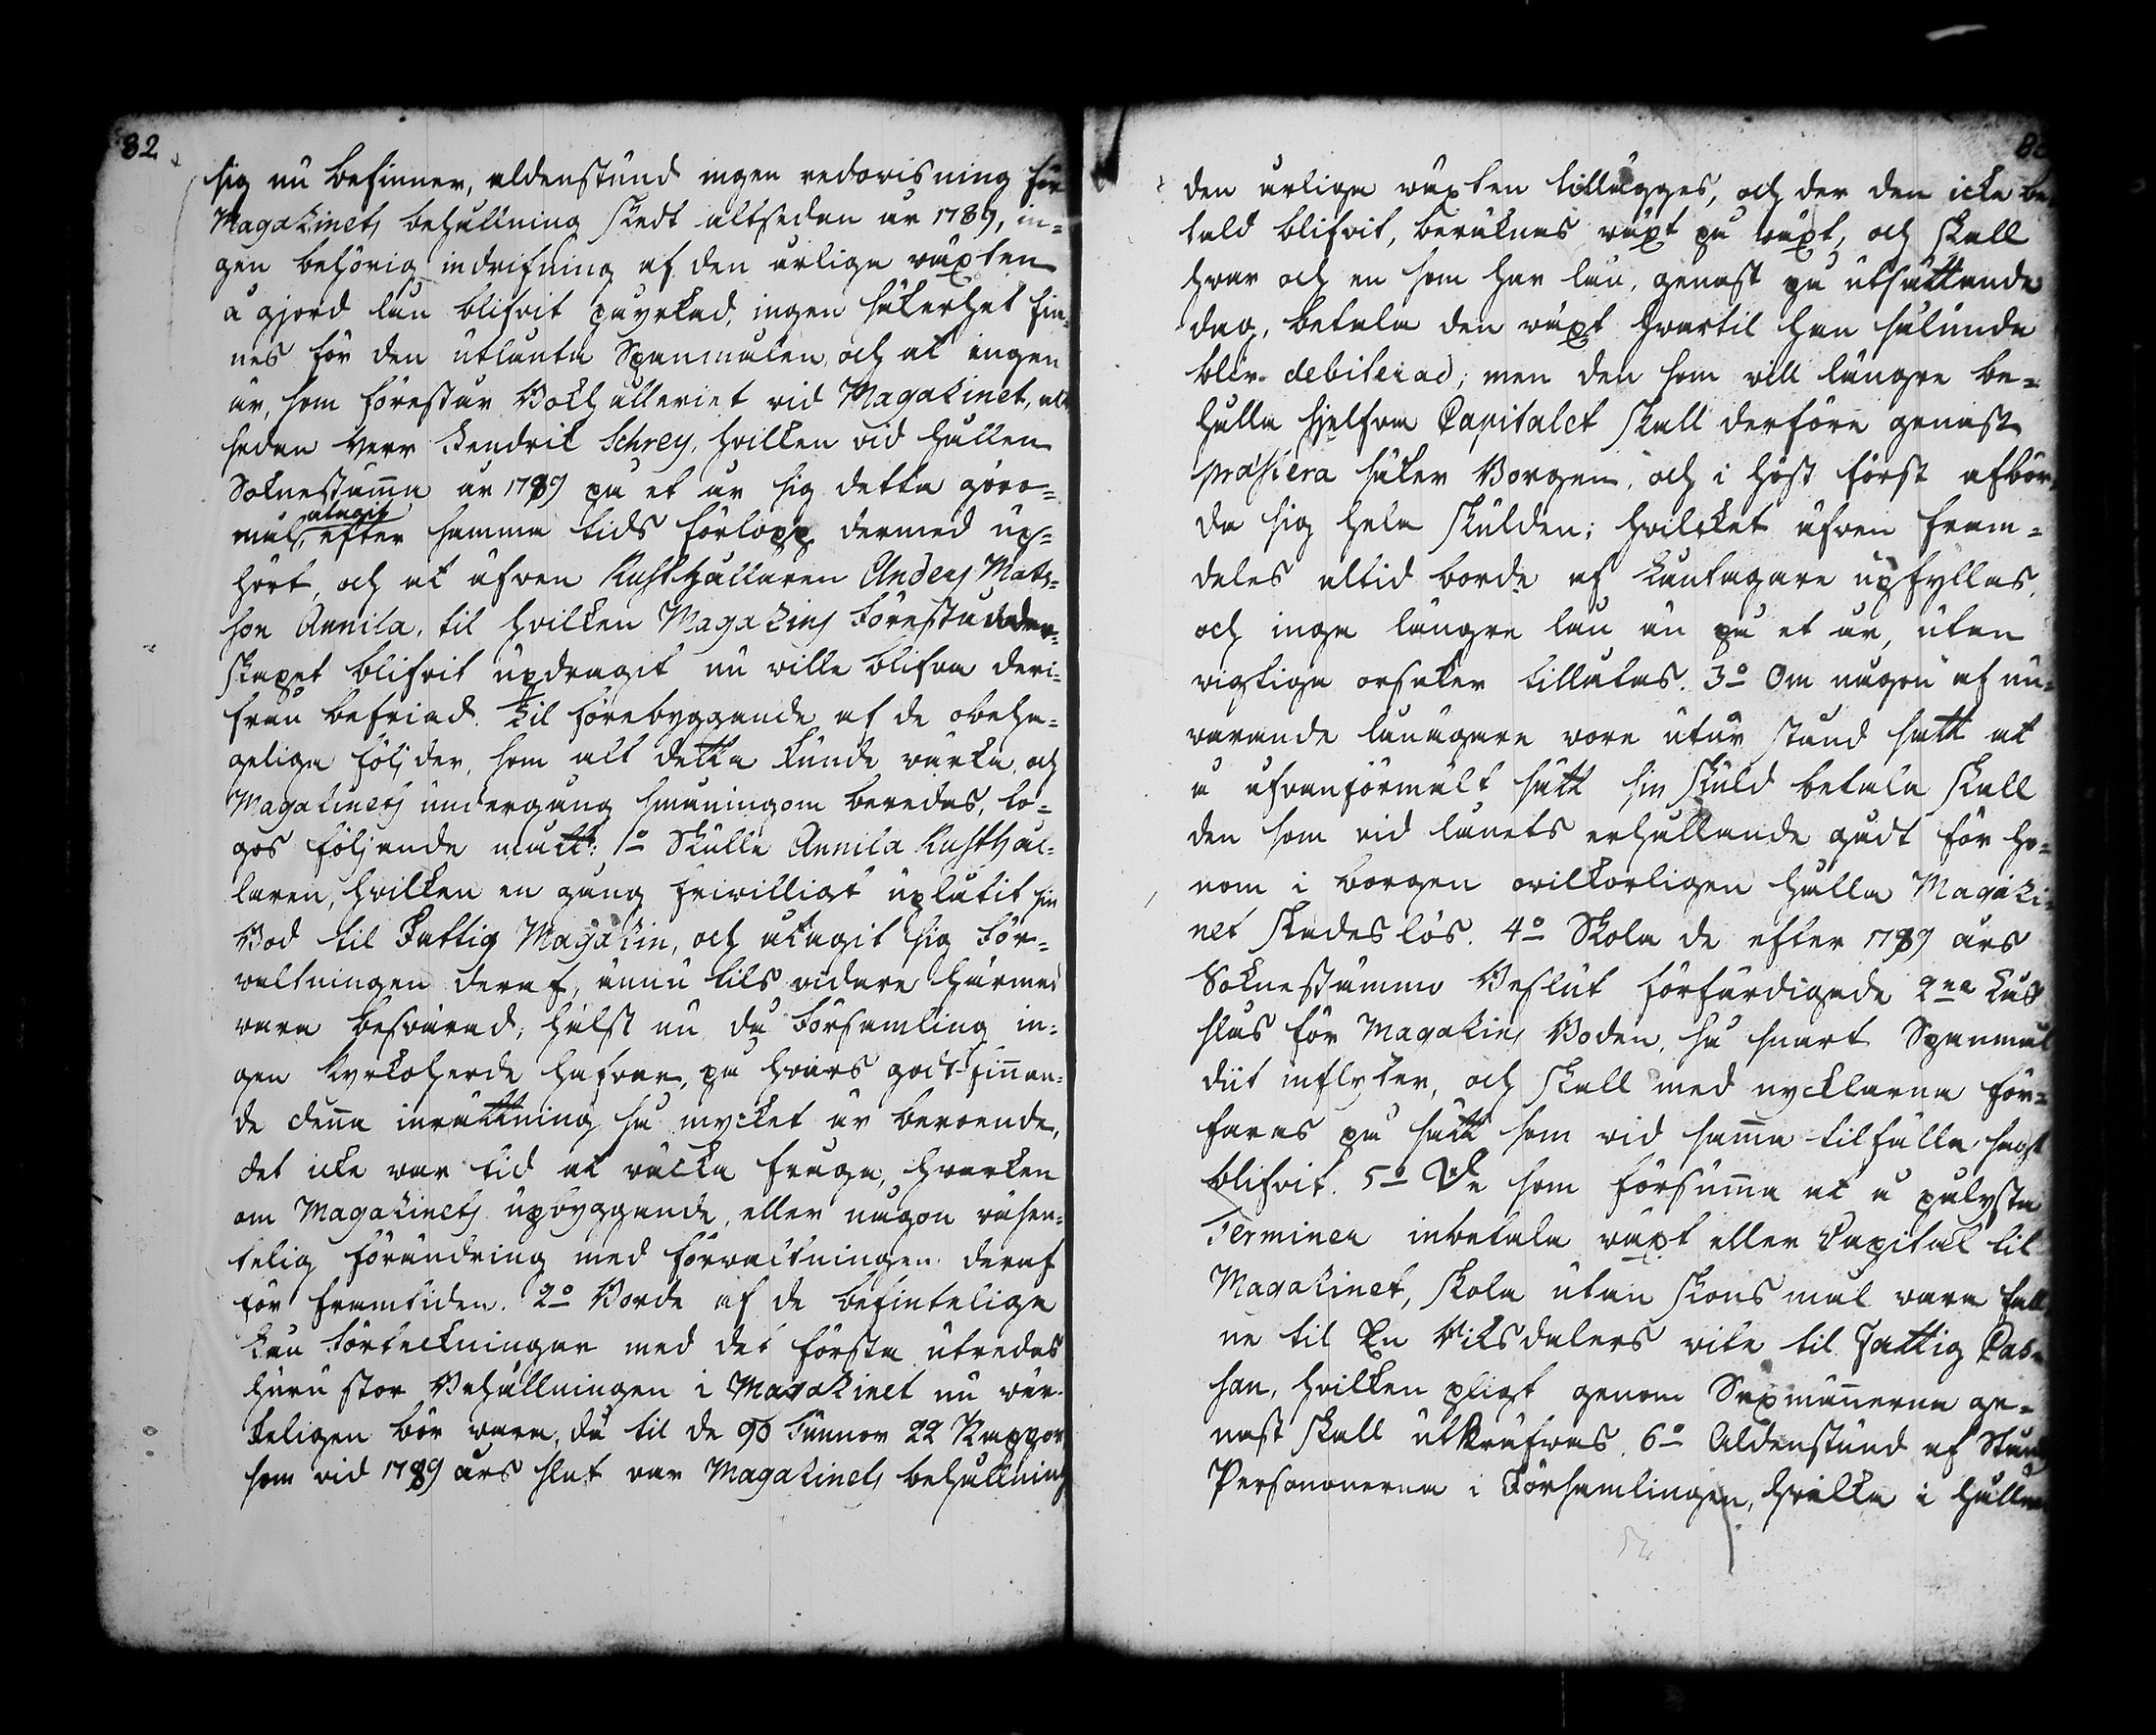 82
sig nu befinner, aldenstund ingen redovisning för
Magazinets behållning skedt altsedan år 1789, in-
gen behörig indrifning af den årliga växten
å gjord lån blifvit påyrkad, ingen säkerhet fin-
nes för den utlånta Spanmålen, och at ingen
är, som förestår Bokhålleriet vid Magazinet, alt
sedan Herr Hendrik Schrey, hvilken vid hållen
Soknestämma år 1789 på et år sig detta göro-
mål, åtagit efter samma tids förlopp dermed up-
hört, och at äfven Rusthållaren Anders Mats-
son Annila, til hvilken Magazins Föreståndar-
skapet blifvit updragit nu ville blifva deri-
från befriad. Til förebyggande af de obeha-
geliga följder, som alt detta kunde värka, och
Magazinets undergång småningom beredas, to-
gos följande mått: 1o Skulle Annila Rusthål-
laren, hvilken en gång frivilligt uplåtit sin
Bod til Fattig Magazin, och åtagit sig För-
valtningen deraf, ännu tils vidare härmed
vara besvärad, hälst nu då Församling in-
gen Kyrkoherde hafver, på hvars godtfinnan-
de denna inrättning så mycket är beroende,
det icke var tid at väcka fråga, hvarken
om Magazinets upbyggande, eller någon väsen-
telig förändring med förvaltningen deraf
för framtiden. 2o Borde af de befintelige
Lån Förteckningar med det första utredas
huru stor Behållningen i Magazinet nu vär-
keligen bör vara, då til de 96 Tunnor 22 Kappor
som vid 1789 års slut var Magazinets behållning
den årliga växten tillägges, och der den icke be-
tald blifvit, beräknas växt på växt, och skall
hvar och en som har lån, genast på utsättande
dag, betala den växt hvartil han sålunda
blir debiterad; men den som vill längre be-
hålla sjelfva Capitalet skall derföre genast
præstera säker Borgen, och i höst först afbör-
da sig hela skulden; hvilcket äfven fram-
deles altid borde af Låntagare upfyllas,
och inga längre lån än på et år, utan
vigtiga orsaker tillåtas. 3o Om någon af nu-
varande lånägare vore utur stånd satt at
å ofvanförmält sätt sin skuld betala skall
den som vid lånets erhållande gådt för ho-
nom i borgen ovilkorligen hålla Magazi-
net skadeslös. 4o Skola de efter 1789 års
Soknestämmo Beslut förfärdigade 2ne Lås
slås för Magazins Boden, så snart Spanmål
dit inflyter, och skall med nycklarna för-
faras på sätt som vid samma tilfälle sagt
blifvit. 5o De som försumma at å pålysta
Terminer inbetala växt eller Capital til
Magazinet, skola utan skonsmål vara fall-
ne til En Riksdalers vite til Fattig Cas-
san, hvilken pligt genom Sexmännerna ge-
nast skall utkräfvas. 6o Aldenstund af Stånds
Personerna i Församlingen, hvilka i hållen